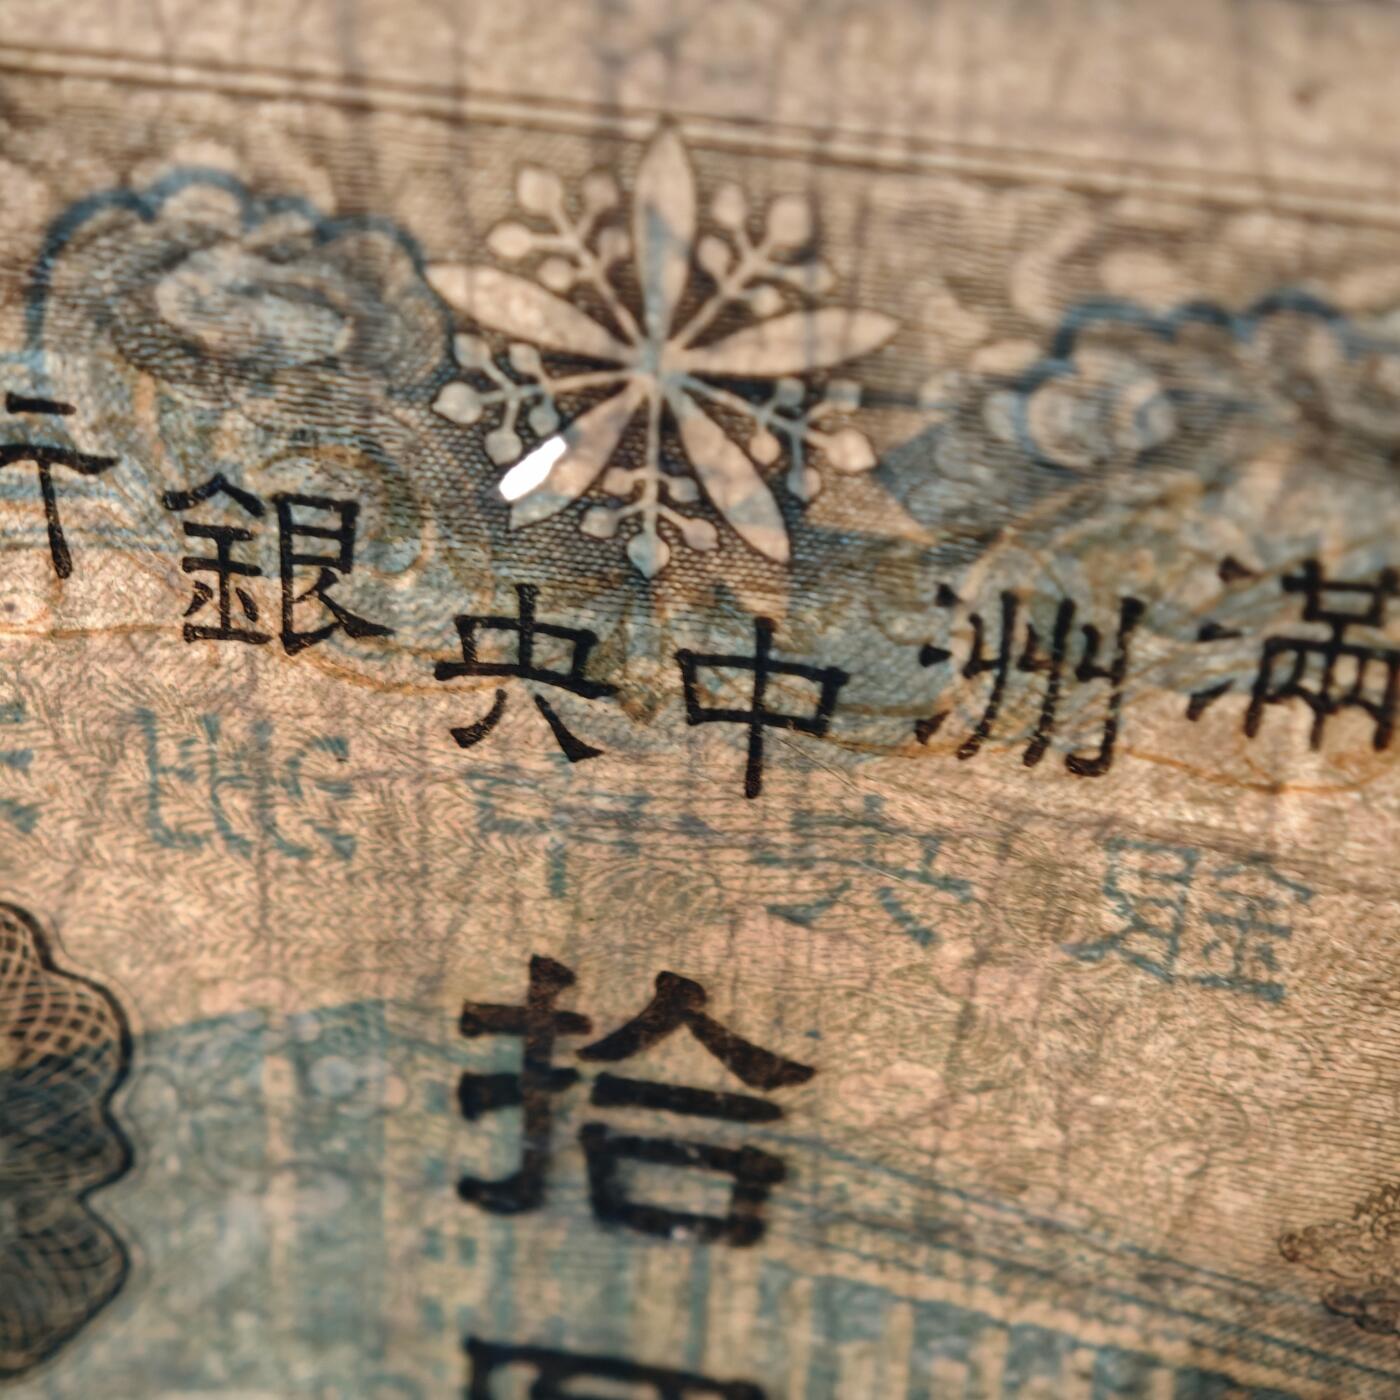 滿洲中央銀行
拾